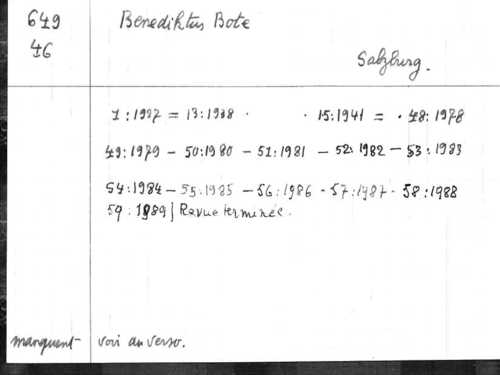 649 Benediktus Bote
46
Salzburg.
1:1927 = 13:1938 . . 15:1941 = . 48:1978
49:1979 - 50:1980 - 51:1981 - 52:1982 - 53:1983
54:1984 - 55:1985 - 56:1986 - 57:1987 - 58:1988
59:1989 | Revue terminée.
manquent voir au verso.